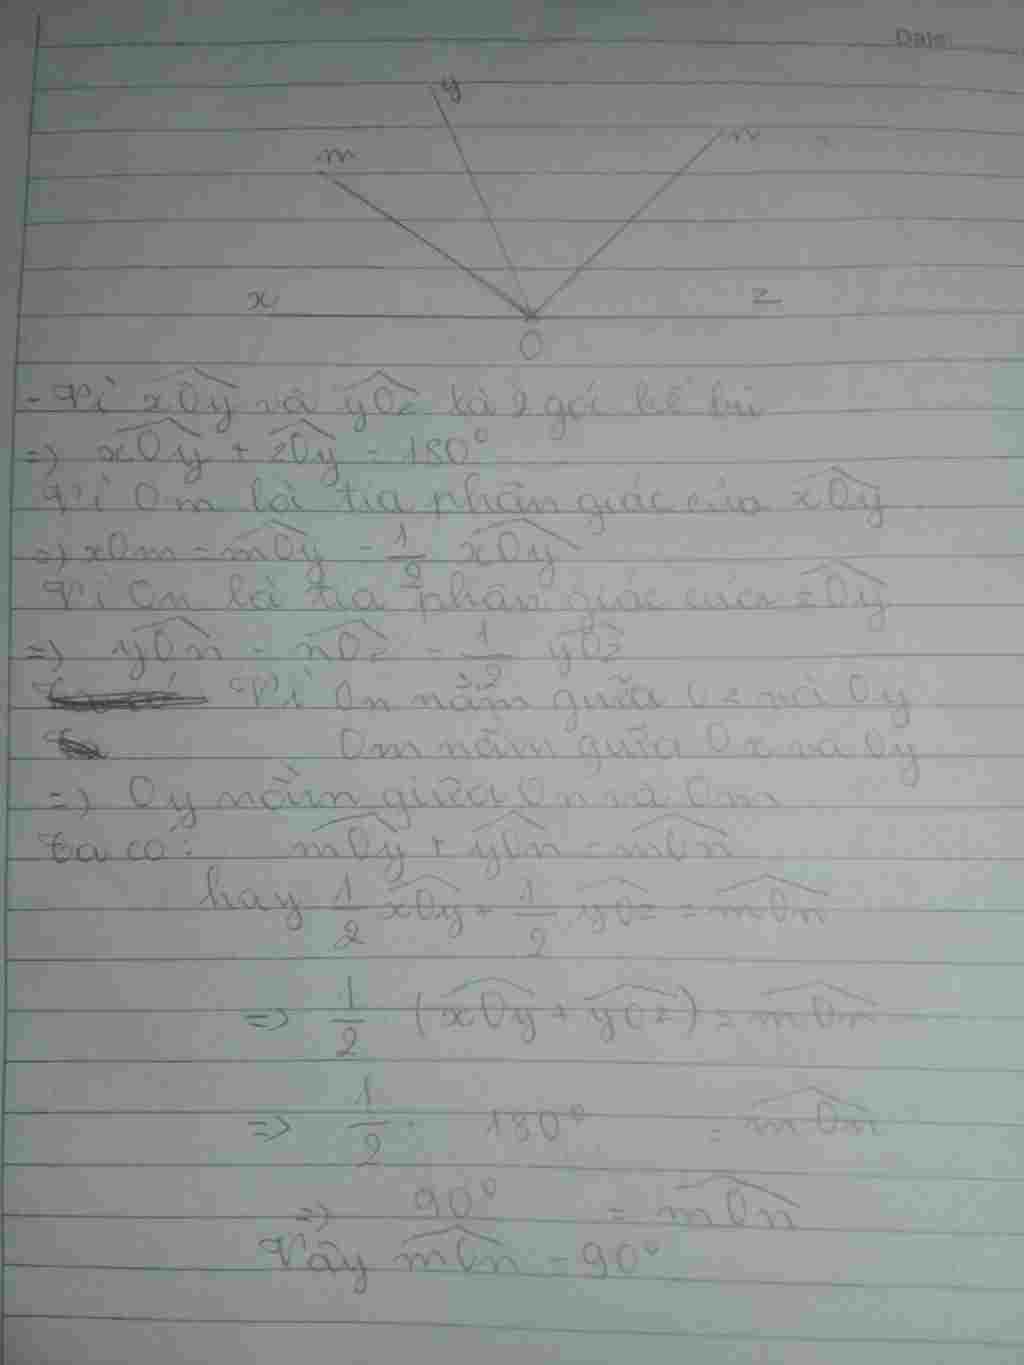 Date:
y
m
n
x
z
O
- Vì xOy và yOz là 2 góc kề bù
=> xOy + zOy = 180°
Vì Om là tia phân giác của xOy
=> xOm = mOy = 1/2 xOy
Vì On là tia phân giác của zOy
=> yOn = nOz = 1/2 yOz
Vì On nằm giữa Oz và Oy
Om nằm giữa Ox và Oy
=> Oy nằm giữa On và Om
Ta có: mOy + yOn = mOn
hay 1/2 xOy + 1/2 yOz = mOn
=> 1/2 (xOy + yOz) = mOn
=> 1/2 . 180° = mOn
=> 90° = mOn
Vậy mOn = 90°